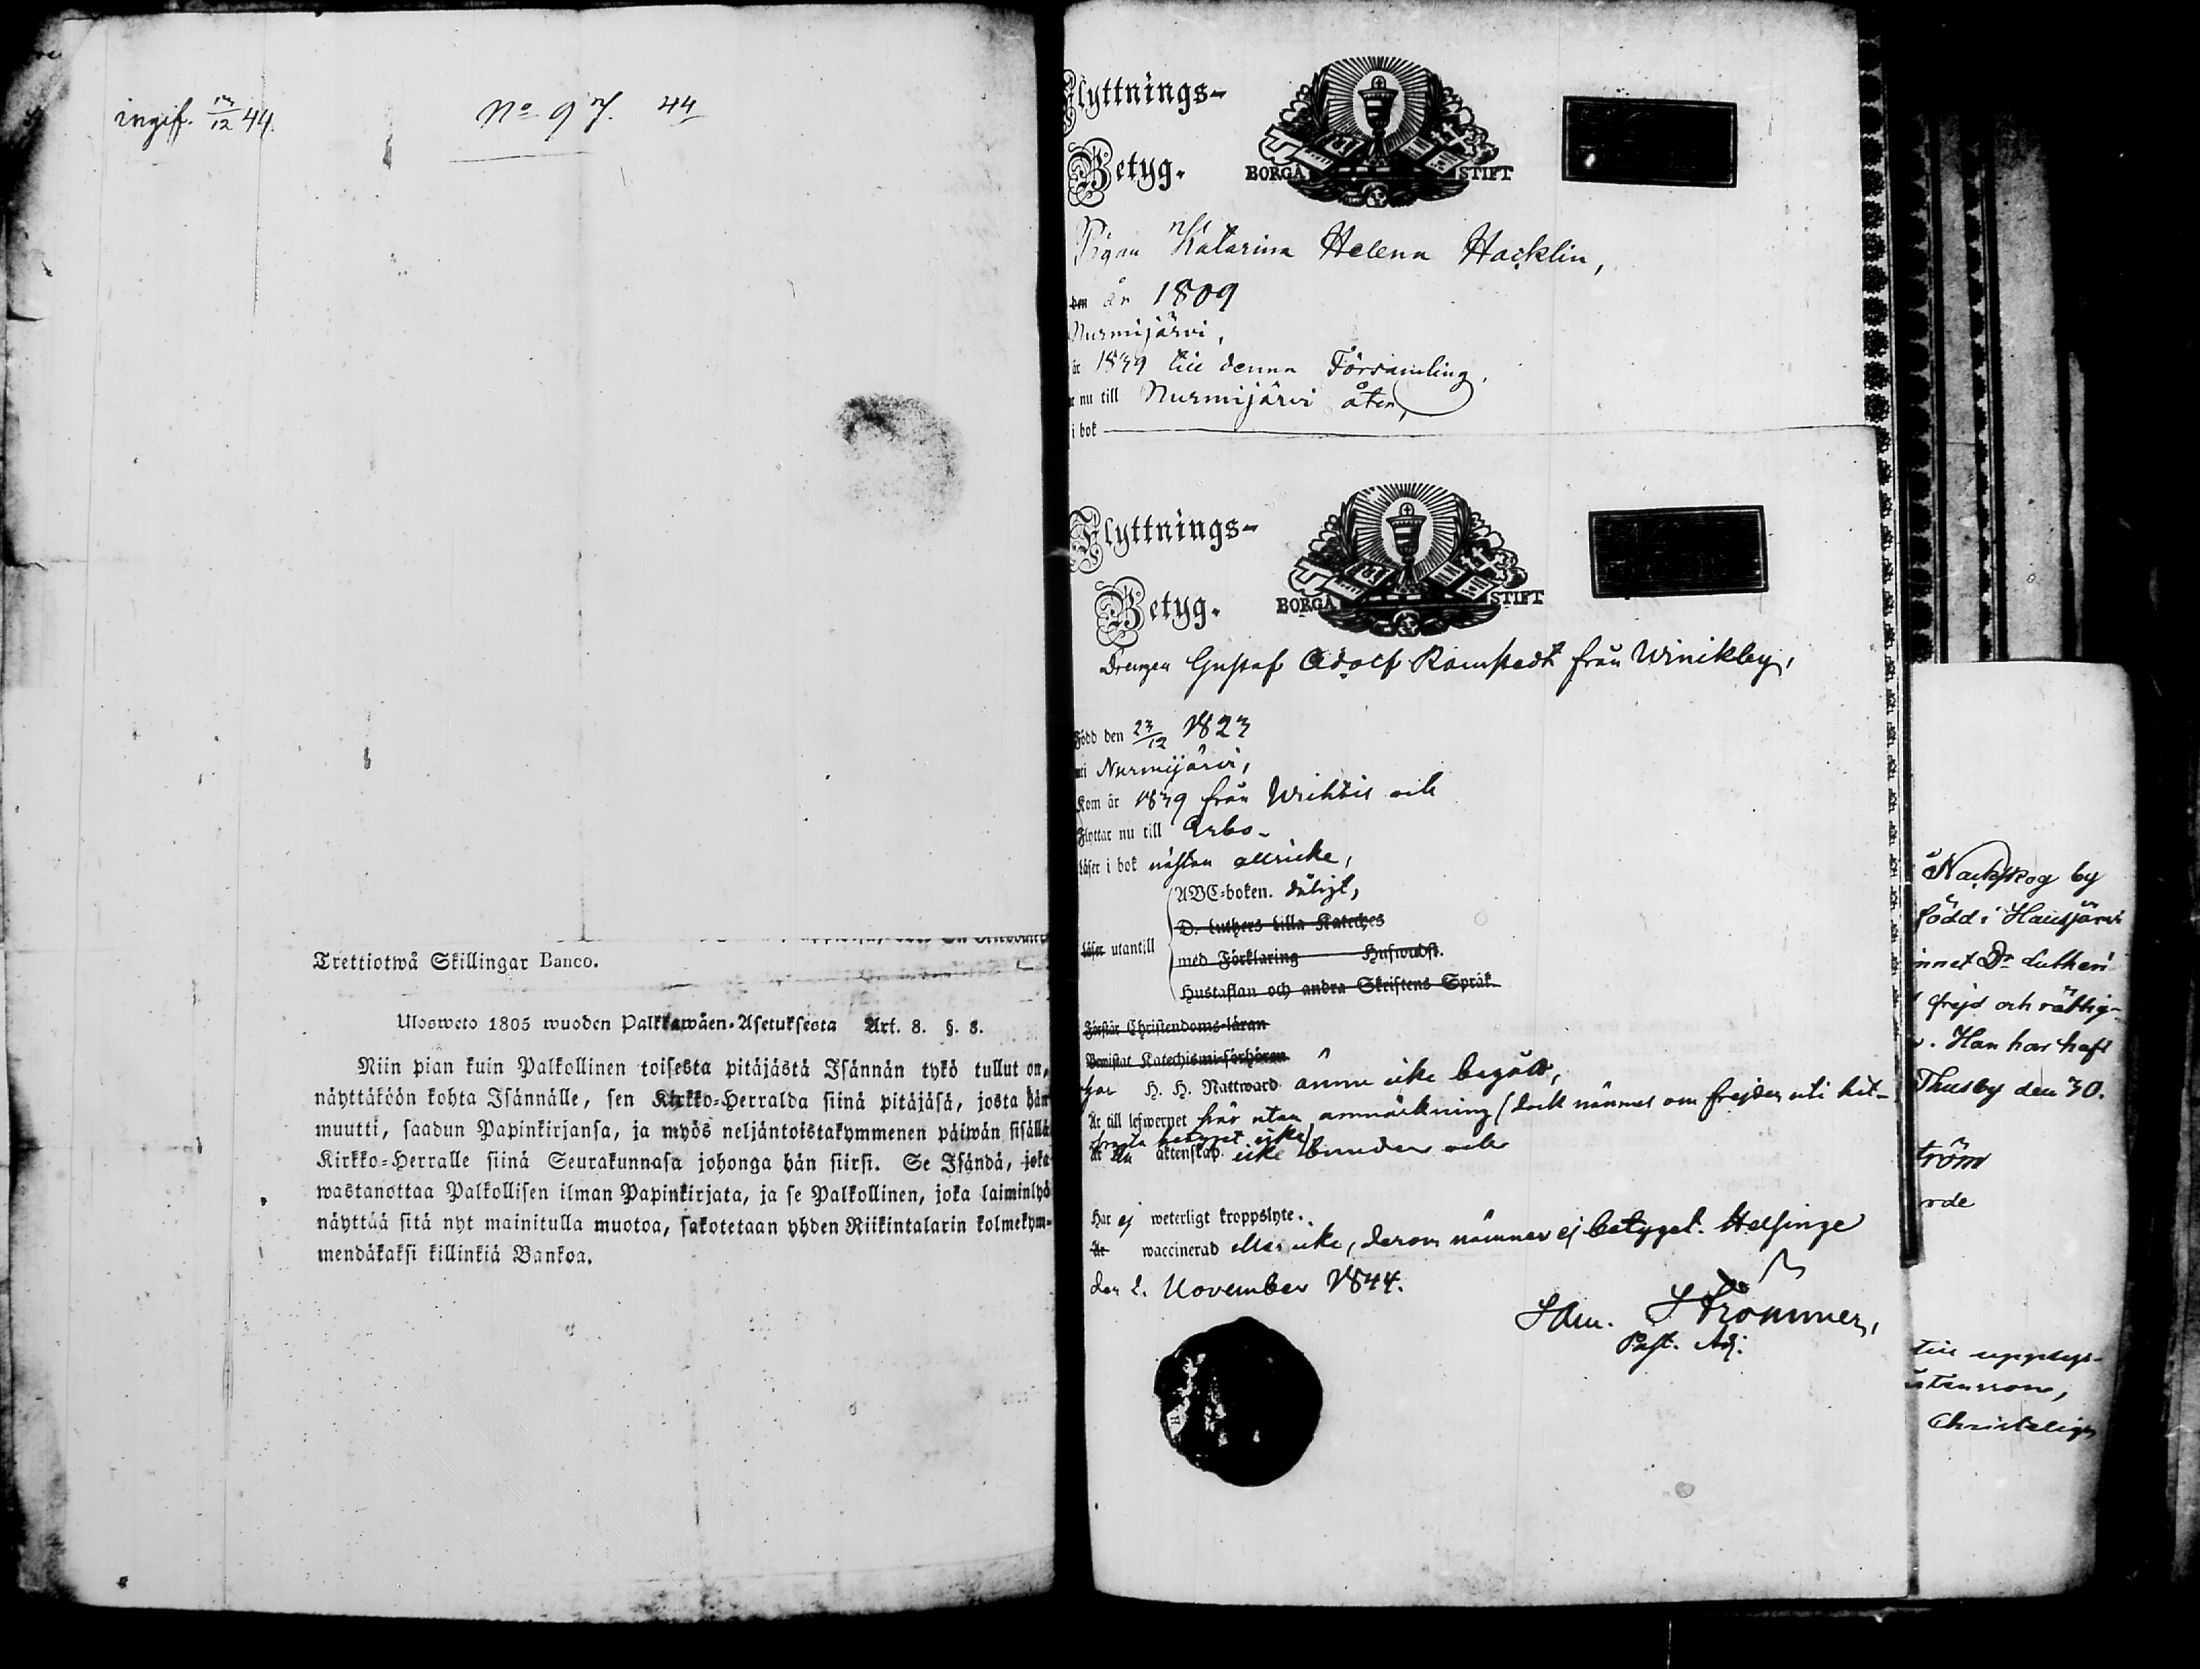 ingif. 13/12 44.
No 97. 44
Trettiotwå Skillingar Banco.
Ulosweto 1805 wuoden Palkkawäen-Asetuksesta Art. 8. §. 8.
Niin pian kuin Palkollinen toisesta pitäjästä Isännän tykö tullut on,
näyttäköön kohta Isännälle, sen Kirkko-Herralda siinä pitäjäsä, josta hän
muutti, saadun Papinkirjansa, ja myös neljäntoistakymmenen päiwän sisällä
Kirkko-Herralle siinä Seurakunnasa johonga hän siirsi. Se Isändä, joka
wastanottaa Palkollisen ilman Papinkirjata, ja se Palkollinen, joka laiminlyö
näyttää sitä nyt mainitulla muotoa, sakotetaan yhden Riikintalarin kolmekym-
mendäkaksi killinkiä Bankoa.
Flyttnings-
Betyg.
BORGÅ STIFT
Pigan Katarina Helena Hacklin,
den år 1809
Nurmijärvi,
år 1839 till denna Församling,
nu till Nurmijärvi åter,
i bok
Flyttnings-
Betyg.
BORGÅ STIFT
Drengen Gustaf Adolf Ramstedt från Winikby,
Född den 23/12 1823
uti Nurmijärvi,
Kom år 1839 från Wichtis och
Flyttar nu till Esbo.
Läser i bok nästan allsicke,
ABC-boken. dåligt,
D. Luthers Lilla Kateches
Läser utantill
med Förklaring Huswudst.
Hustaflan och andra Skriftens Språk
Förstår Christendoms-läran
Bewistat Katechismi-förhören
har H. H. Nattward ännu icke begått,
Är till lefwernet här utan anmärkning (dock nämnes om frejden uti hit-
betyget icke)
Är till äktenskap icke bunden och
Har ej weterligt kroppslyte.
Är waccinerad eller icke, derom nämner ej betyget. Helsinge
den 2. November 1844.
Sam. Strömmer,
Past. Adj.
Nackskog by
född i Hausjärvi
Dr Lutheri
frejd och rättig-
. Han har haft
Thusby den 30.
ström
rde
till upplys-
Christelig